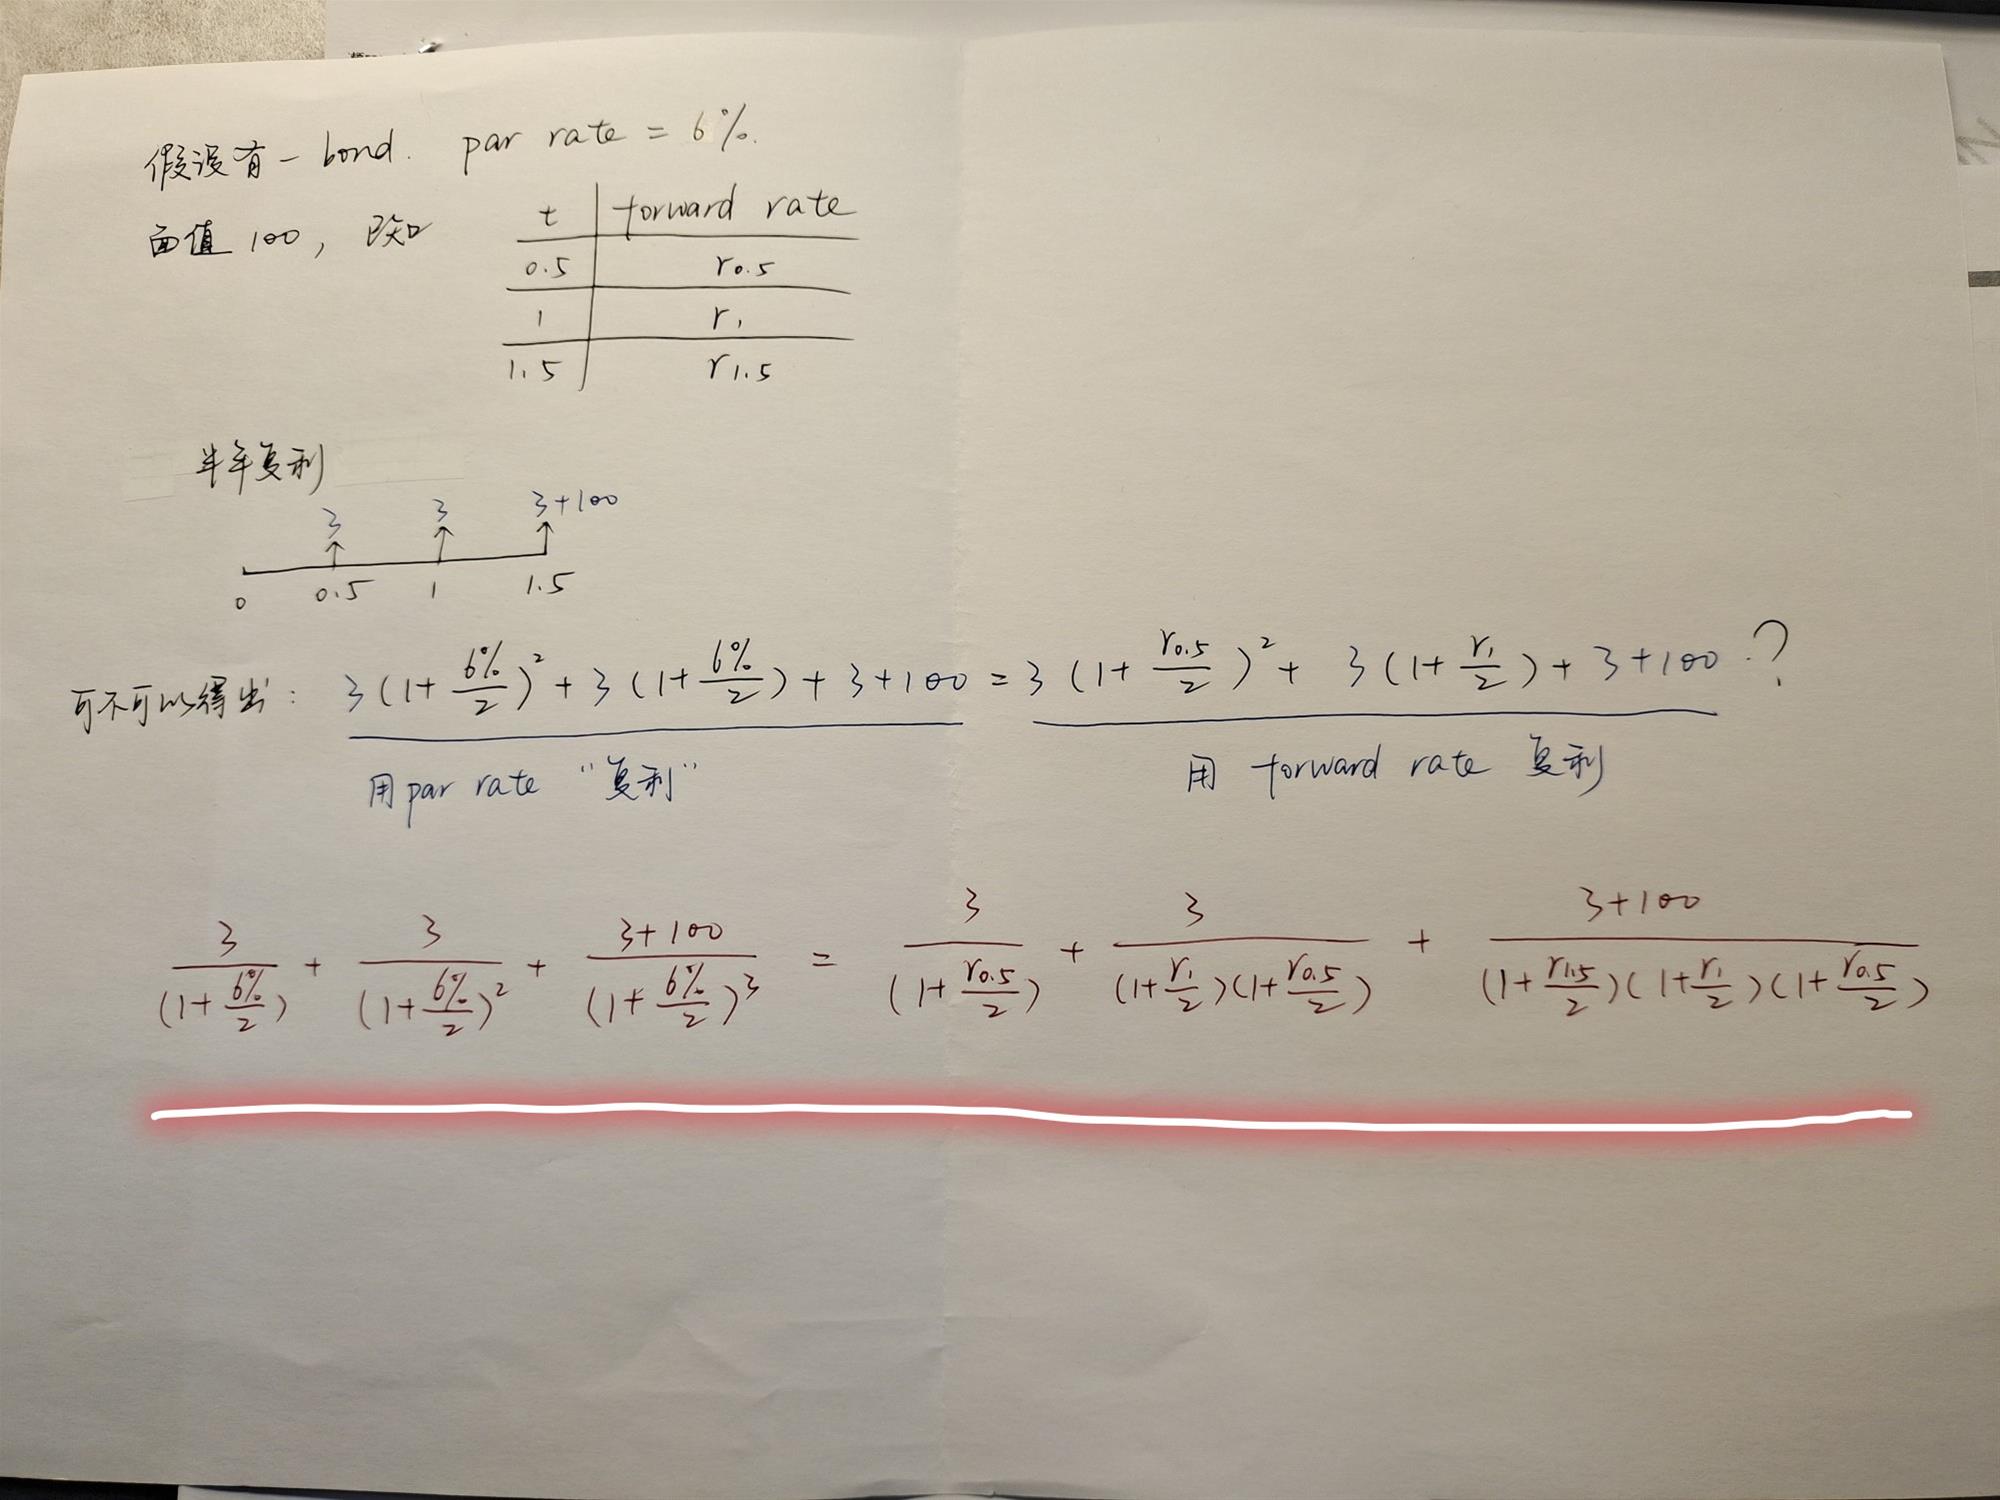 假设有一 bond. par rate = 6%.
面值 100, 已知
t | forward rate
0.5 | r0.5
1 | r1
1.5 | r1.5
半年复利
3 3 3+100
0 0.5 1 1.5
可不可以得出: 3(1+6%/2)²+3(1+6%/2)+3+100=3(1+r0.5/2)²+3(1+r1/2)+3+100 ?
用par rate "复利" 用 forward rate 复利
3/(1+6%/2) + 3/(1+6%/2)² + 3+100/(1+6%/2)³ = 3/(1+r0.5/2) + 3/(1+r1/2)(1+r0.5/2) + 3+100/(1+r1.5/2)(1+r1/2)(1+r0.5/2)